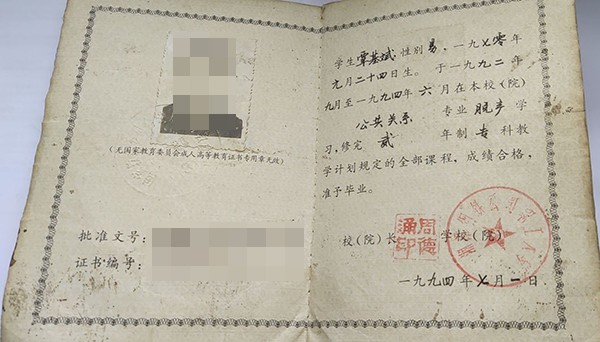 (无国家教育委员会成人高等教育证书专用章无效)
批准文号:
证书编号:
学生覃基斌性别男,一九七零年
九月二十四日生。于一九九二年
九月至一九九四年六月在本校(院)
公共关系 专业脱产学
习,修完 贰 年制专科教
学计划规定的全部课程,成绩合格,
准予毕业。
校(院)长 学校(院)
周德
涌印
一九九四年七月一日